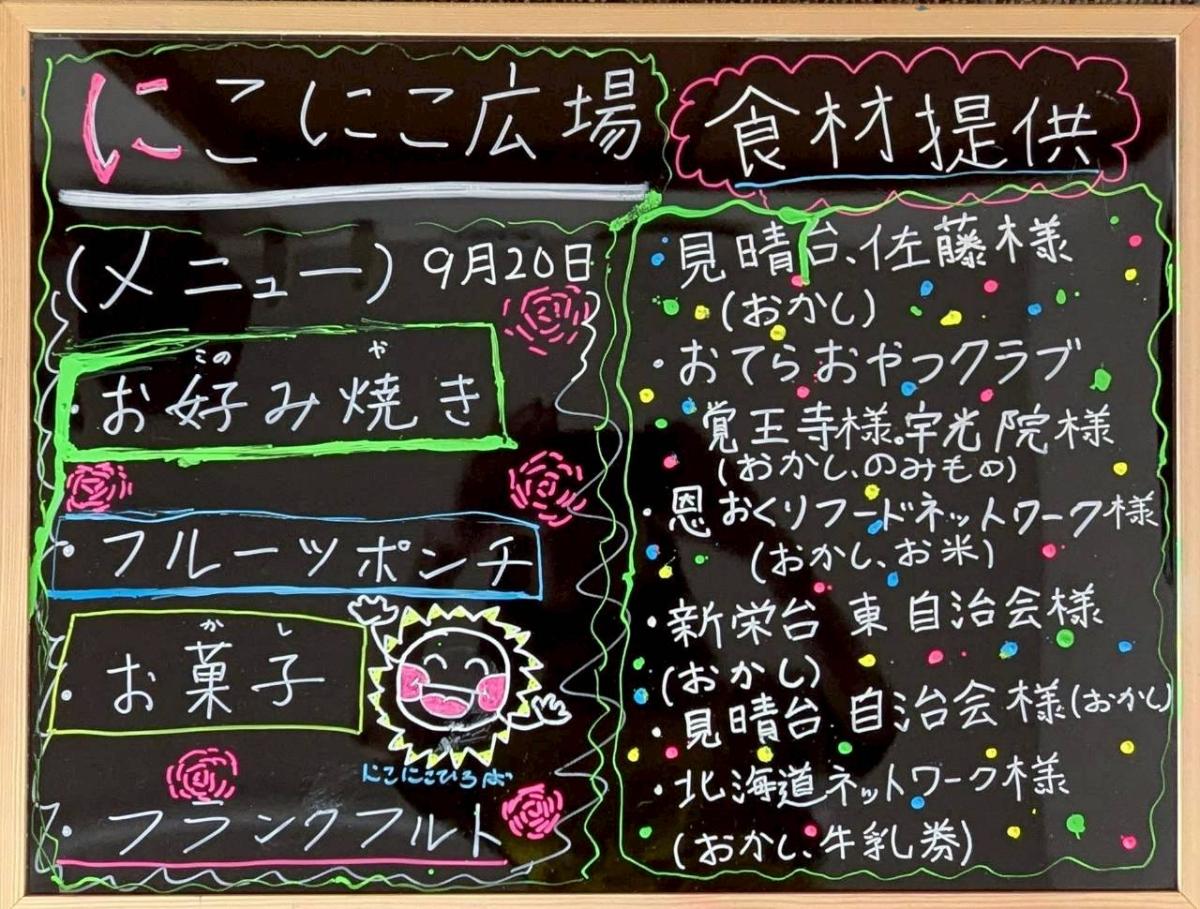 にこにこ広場
(メニュー) 9月20日
このや
・お好み焼き
・フルーツポンチ
かし
・お菓子
にこにこひろば
・フランクフルト
食材提供
・見晴台、佐藤様
(おかし)
・おてらおやつクラブ
覚王寺様。宇光院様
(おかし、のみもの)
・恩おくりフードネットワーク様
(おかし、お米)
・新栄台 東 自治会様
(おかし)
・見晴台 自治会様(おかし)
・北海道ネットワーク様
(おかし、牛乳券)